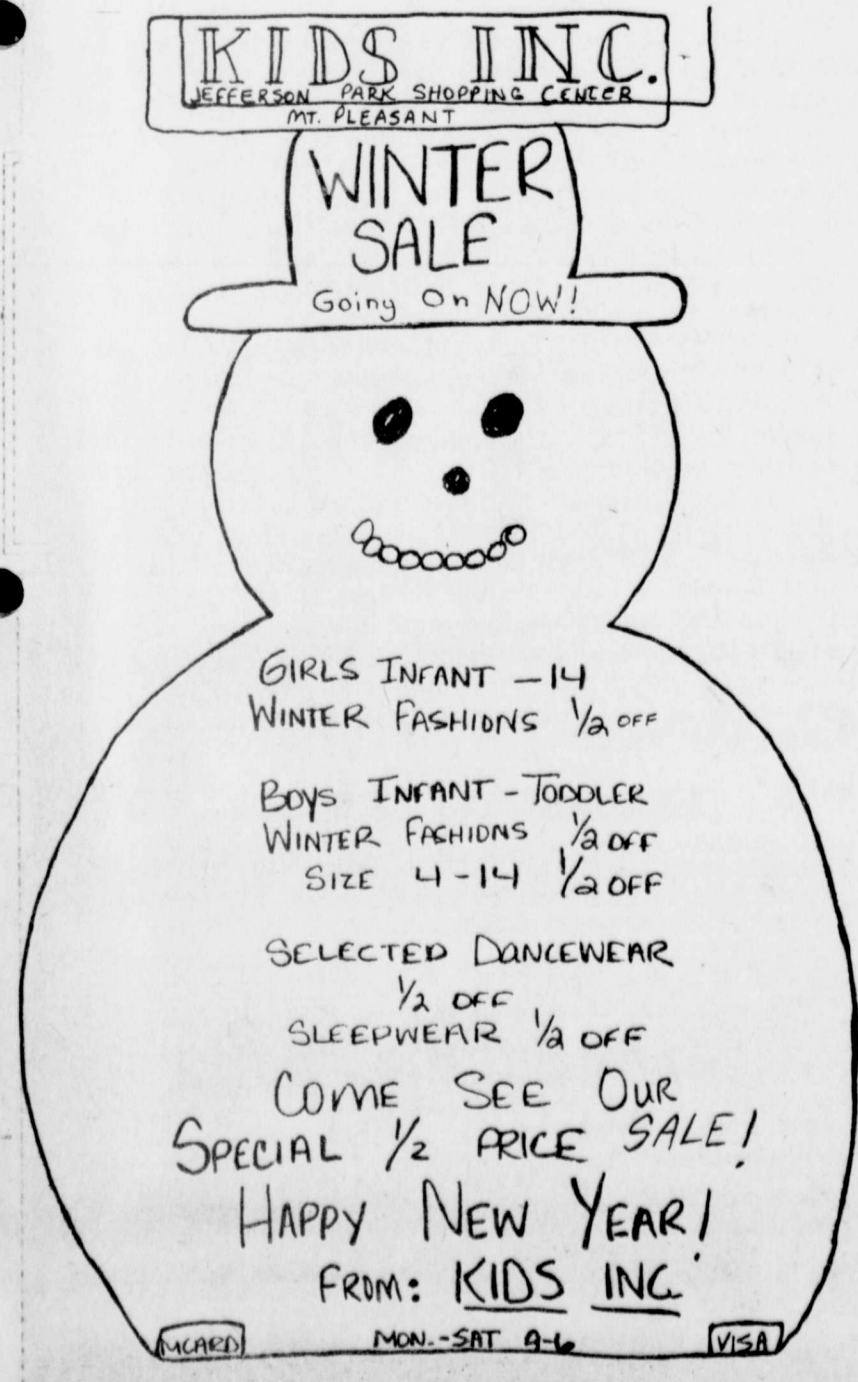 KIDS INC.
JEFFERSON PARK SHOPPING CENTER
MT. PLEASANT
WINTER
SALE
Going On NOW!
GIRLS INFANT - 14
WINTER FASHIONS 1/2 OFF
BOYS INFANT - TODDLER
WINTER FASHIONS 1/2 OFF
SIZE 4-14 1/2 OFF
SELECTED DANCEWEAR
1/2 OFF
SLEEPWEAR 1/2 OFF
COME SEE OUR
SPECIAL 1/2 PRICE SALE!
HAPPY NEW YEAR!
FROM: KIDS INC.
MCARD MON.-SAT 9-6 VISA